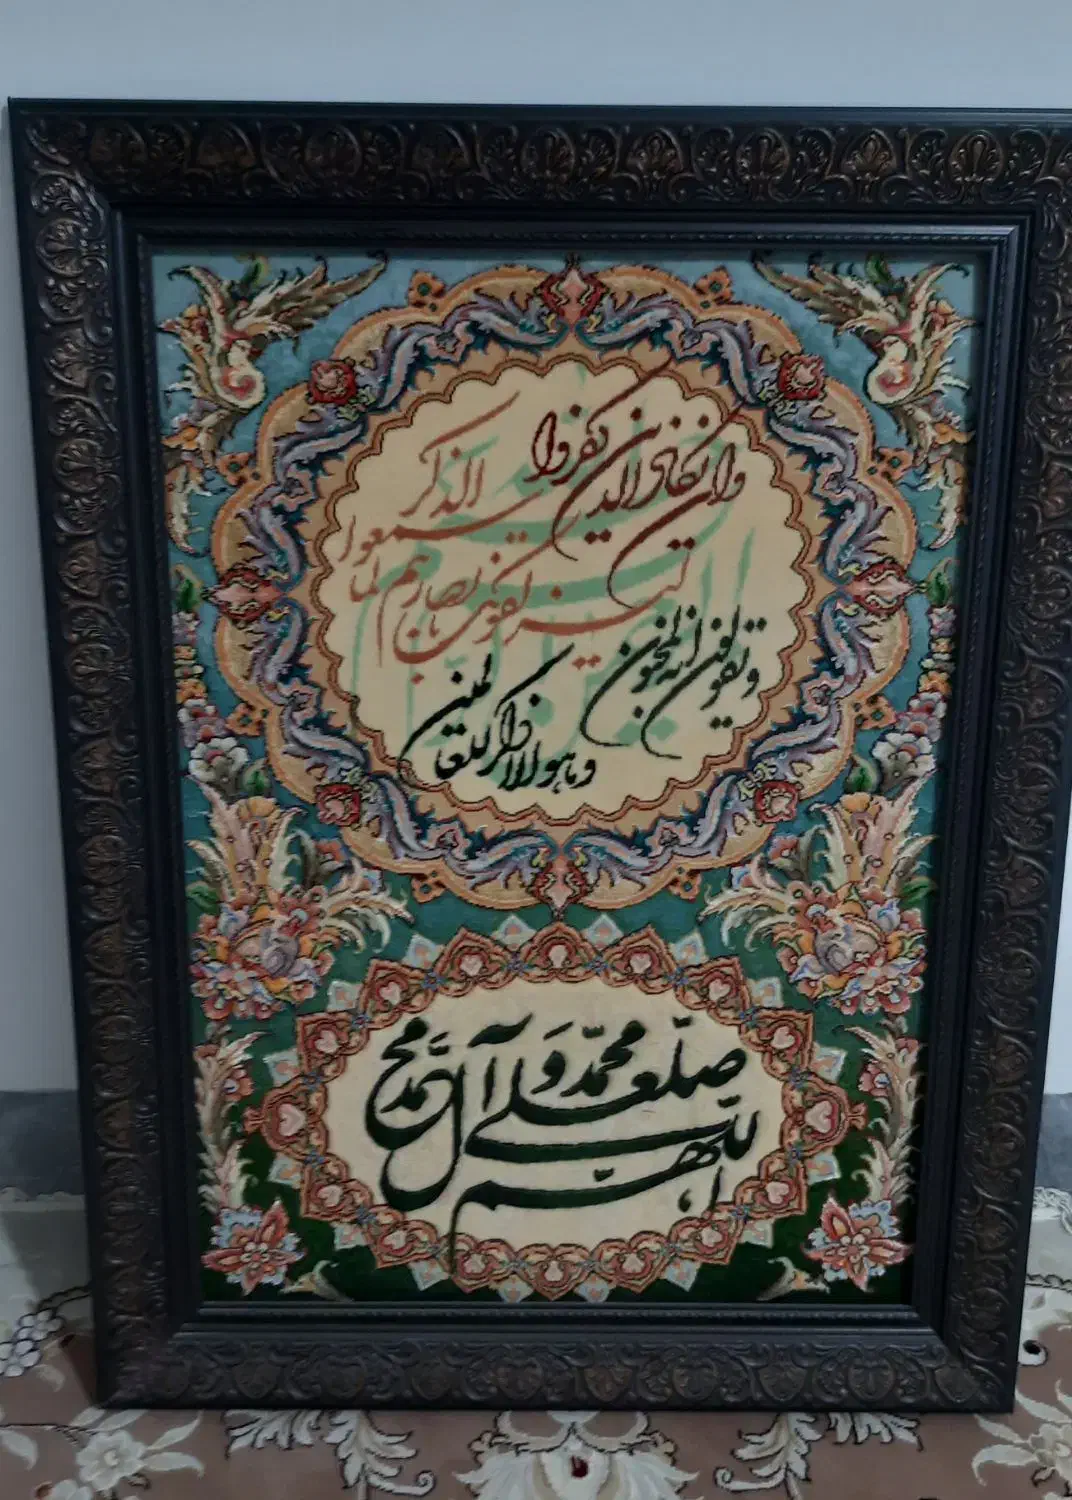 وان یکاد الذین کفروا
لیزلقونک بابصارهم لما
سمعوا الذکر
ویقولون انه لمجنون
وما هو الا ذکر للعالمین
اللهم صل علی محمد و آل محمد